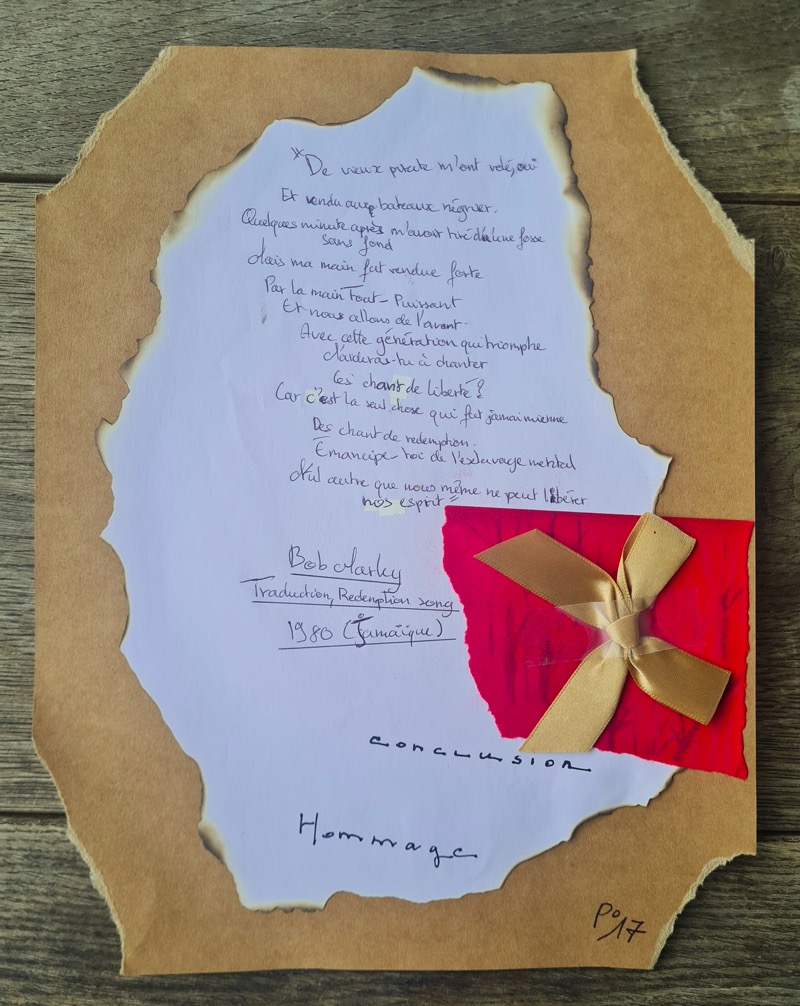 "De vieux pirate m'ont volé, oui
Et vendu aux bateaux négrier.
Quelques minute après m'avoir tiré d'une fosse
sans fond
Mais ma main fut rendue forte
Par la main Tout-Puissant
Et nous allons de l'avant
Avec cette génération qui triomphe
M'aideras-tu à chanter
Ces chant de liberté ?
Car c'est la seul chose qui fut jamais mienne
Des chant de redemption.
Émancipe-toi de l'esclavage mental
Nul autre que nous même ne peut libérer
nos esprit"
Bob Marley
Traduction, Redemption song
1980 (Jamaïque)
conclusion
Hommage
P° 17